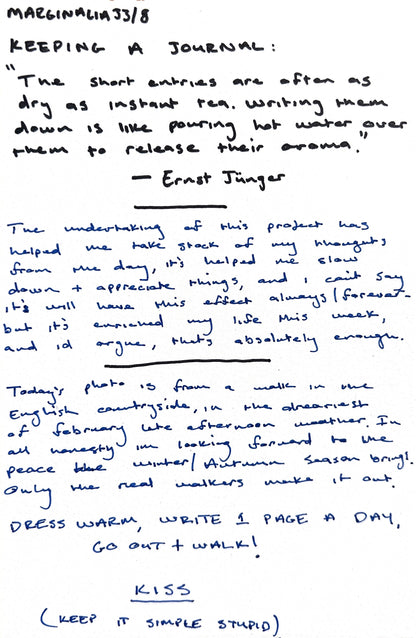 MARGINALIA 33/8
KEEPING A JOURNAL:
"The short entries are often as
dry as instant tea. Writing them
down is like pouring hot water over
them to release their aroma."
— Ernst Jünger
The undertaking of this project has
helped me take stock of my thoughts
from the day, it's helped me slow
down + appreciate things, and i can't say
it's will have this effect always/forever-
but it's enriched my life this week,
and i'd argue, that's absolutely enough.
Today's photo is from a walk in the
English countryside, in the dreariest
of february late afternoon weather. In
all honesty im looking forward to the
peace winter/Autumn season bring!
Only the real walkers make it out.
DRESS WARM, WRITE 1 PAGE A DAY,
GO OUT + WALK!
KISS
(KEEP IT SIMPLE STUPID)